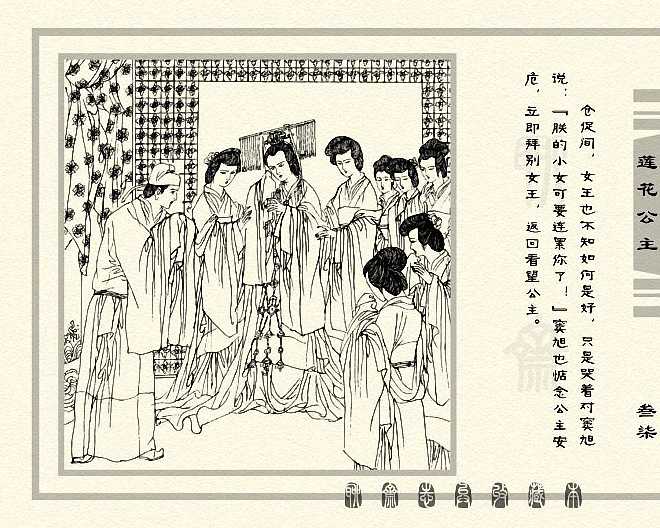 仓促间，女王也不知如何是好，只是哭着对窦旭
说：『朕的小女可要连累你了！』窦旭也惦念公主安
危，立即拜别女王，返回看望公主。
莲花公主
叁柒